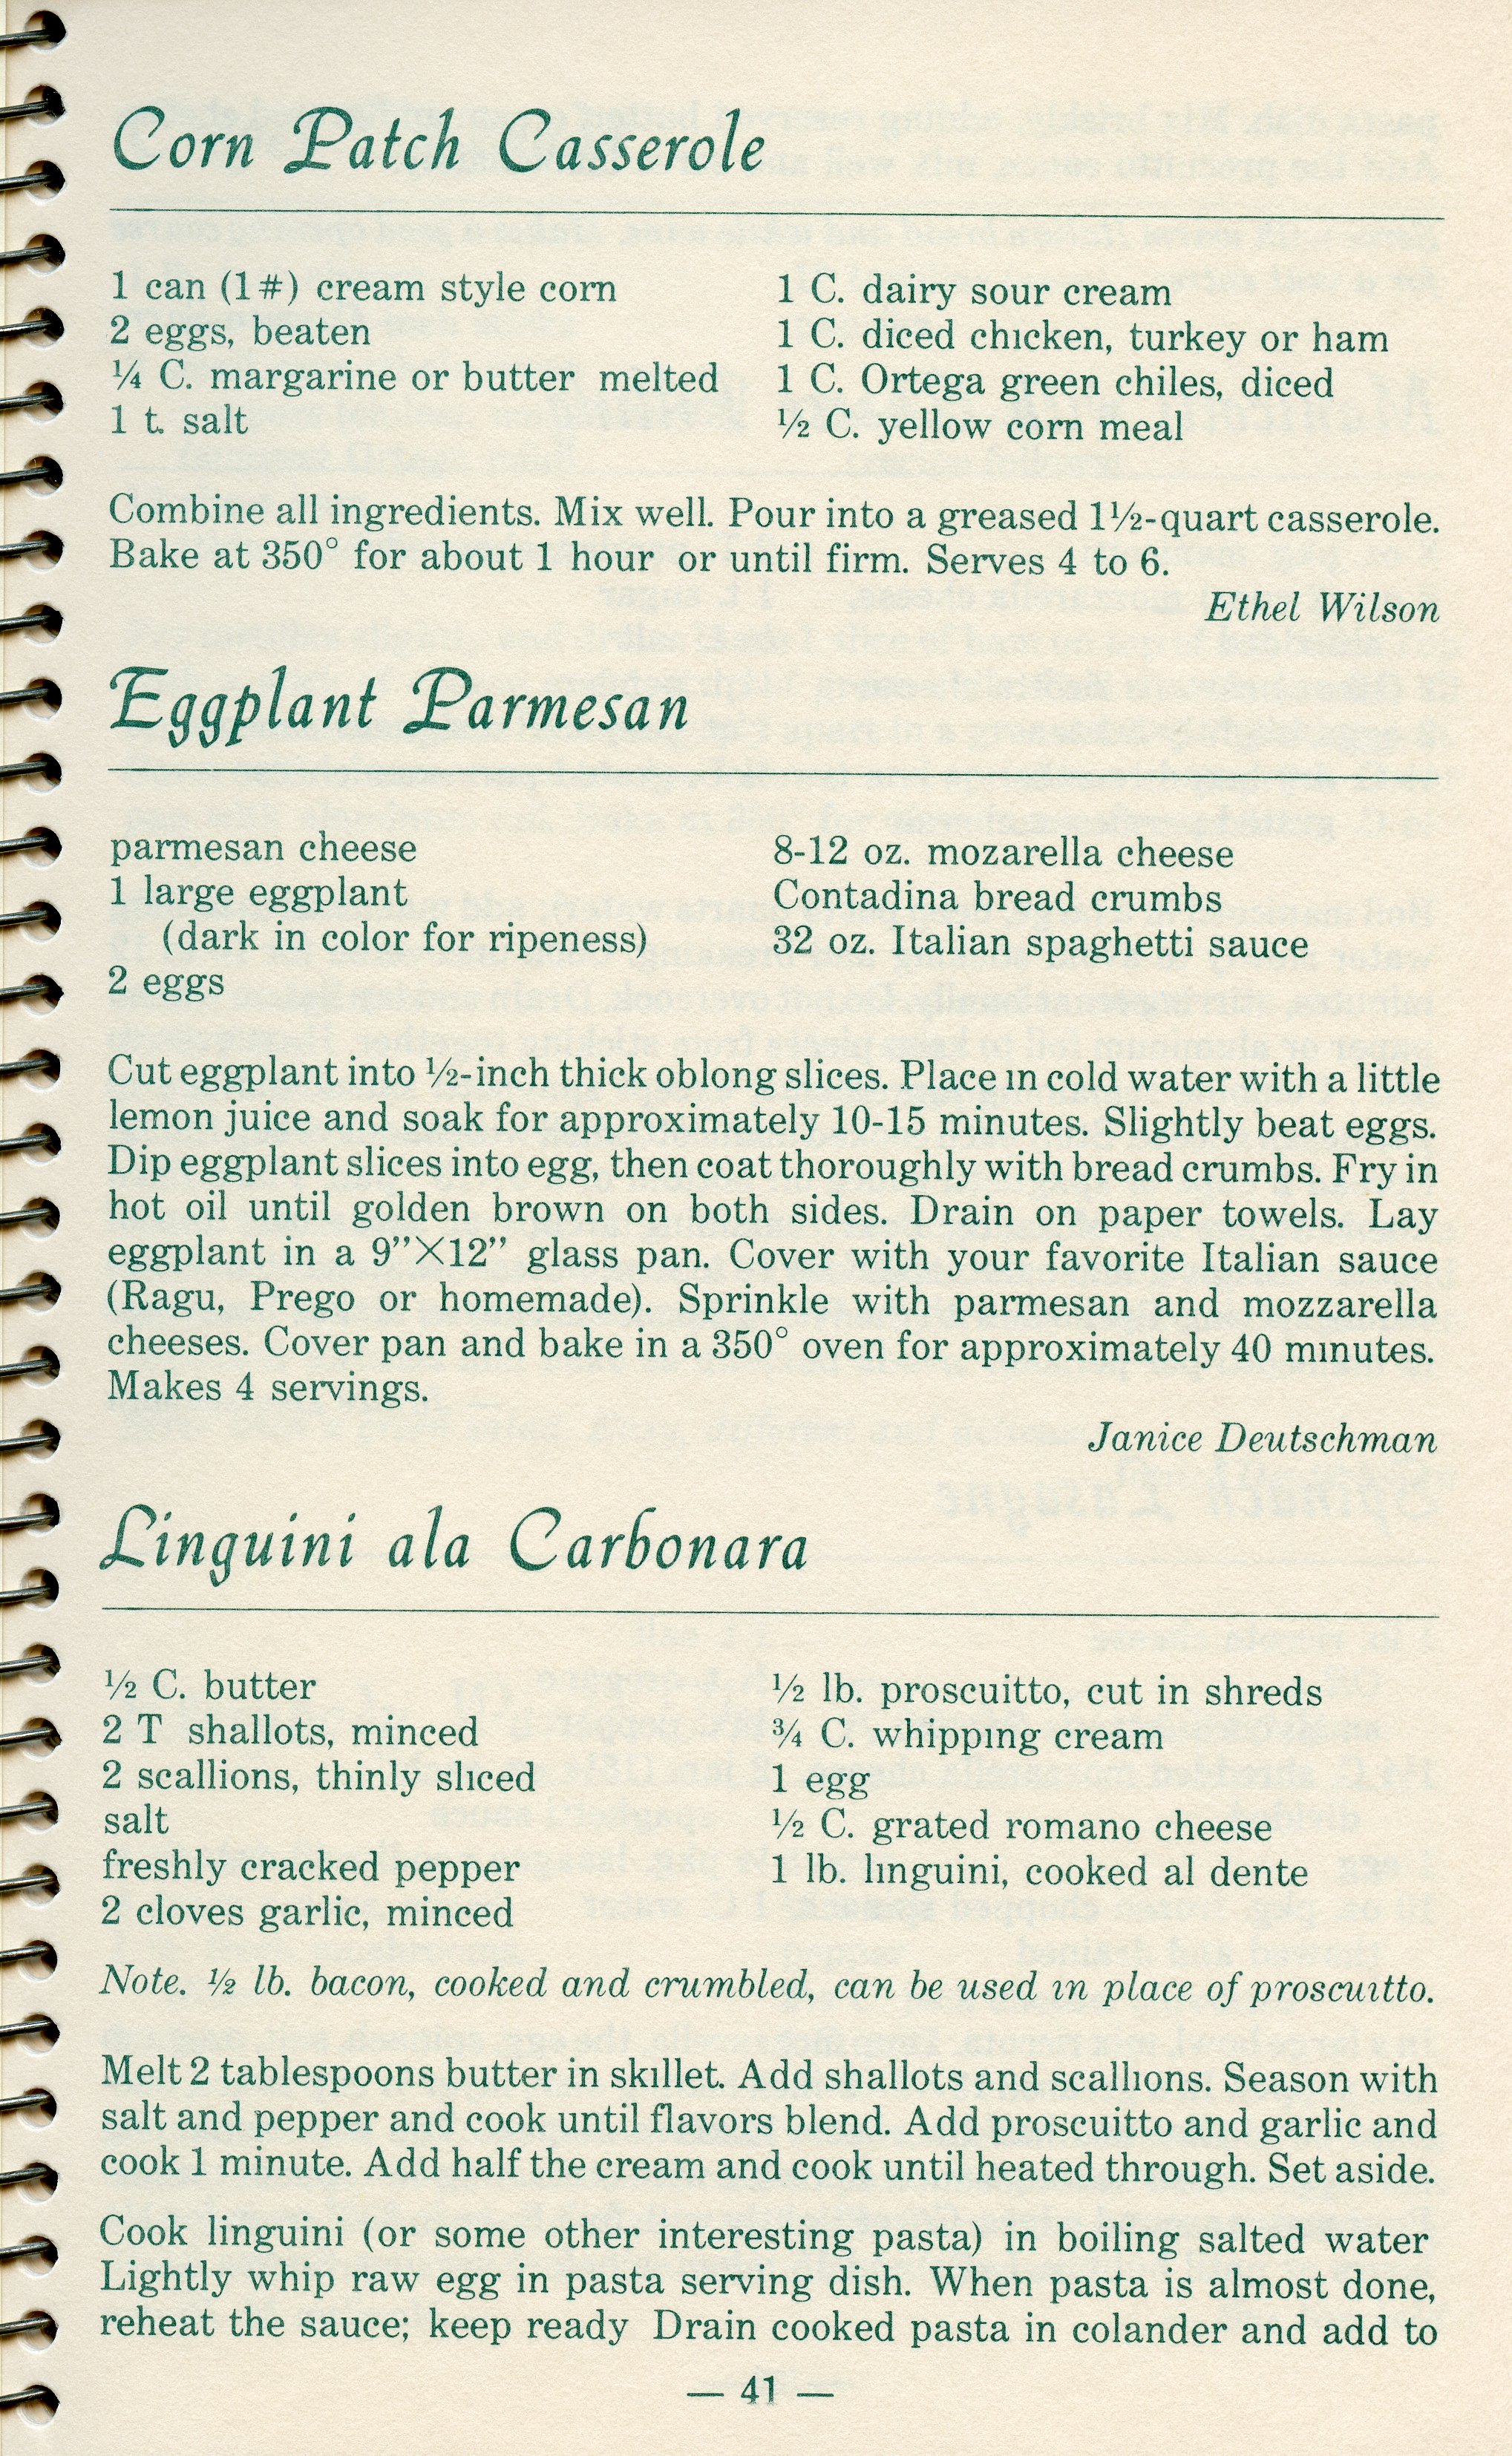 Corn Patch Casserole
1 can (1#) cream style corn
2 eggs, beaten
¼ C. margarine or butter melted
1 t. salt
1 C. dairy sour cream
1 C. diced chicken, turkey or ham
1 C. Ortega green chiles, diced
½ C. yellow corn meal
Combine all ingredients. Mix well. Pour into a greased 1½-quart casserole.
Bake at 350° for about 1 hour or until firm. Serves 4 to 6.
Ethel Wilson
Eggplant Parmesan
parmesan cheese
1 large eggplant
(dark in color for ripeness)
2 eggs
8-12 oz. mozarella cheese
Contadina bread crumbs
32 oz. Italian spaghetti sauce
Cut eggplant into ½-inch thick oblong slices. Place in cold water with a little
lemon juice and soak for approximately 10-15 minutes. Slightly beat eggs.
Dip eggplant slices into egg, then coat thoroughly with bread crumbs. Fry in
hot oil until golden brown on both sides. Drain on paper towels. Lay
eggplant in a 9”×12” glass pan. Cover with your favorite Italian sauce
(Ragu, Prego or homemade). Sprinkle with parmesan and mozzarella
cheeses. Cover pan and bake in a 350° oven for approximately 40 minutes.
Makes 4 servings.
Janice Deutschman
Linguini ala Carbonara
½ C. butter
2 T shallots, minced
2 scallions, thinly sliced
salt
freshly cracked pepper
2 cloves garlic, minced
½ lb. proscuitto, cut in shreds
¾ C. whipping cream
1 egg
½ C. grated romano cheese
1 lb. linguini, cooked al dente
Note. ½ lb. bacon, cooked and crumbled, can be used in place of proscuitto.
Melt 2 tablespoons butter in skillet. Add shallots and scallions. Season with
salt and pepper and cook until flavors blend. Add proscuitto and garlic and
cook 1 minute. Add half the cream and cook until heated through. Set aside.
Cook linguini (or some other interesting pasta) in boiling salted water
Lightly whip raw egg in pasta serving dish. When pasta is almost done,
reheat the sauce; keep ready Drain cooked pasta in colander and add to
— 41 —